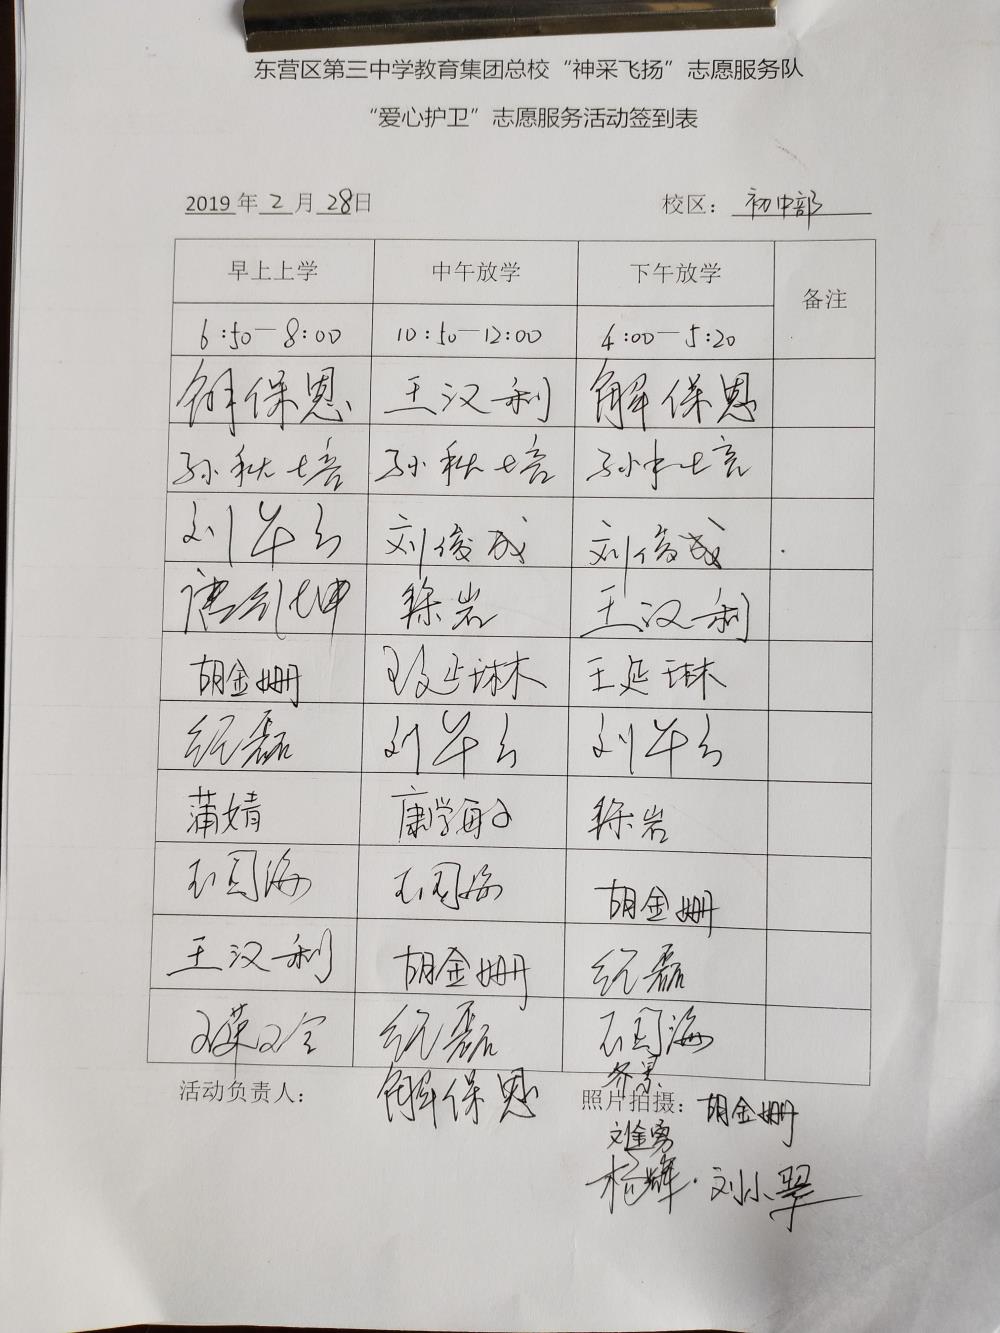 东营区第三中学教育集团总校“神采飞扬”志愿服务队
“爱心护卫”志愿服务活动签到表
2019年2月28日 校区：初中部
早上上学 中午放学 下午放学 备注
6:50—8:00 10:50—12:00 4:00—5:20
解保恩 王汉利 解保恩
孙秋培 孙秋培 孙秋培
刘 刘俊成 刘俊成
徐岩 王汉利
胡金姗 王延琳 王延琳
纪磊 刘 刘
蒲婧 康学 徐岩
石国海 石国海 胡金姗
王汉利 胡金姗 纪磊
纪磊 石国海
活动负责人： 解保恩 照片拍摄：胡金姗
刘金勇
杨辉 刘小翠